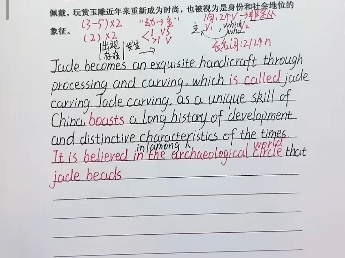 佩戴、玩赏玉雕近年来重新成为时尚，也被视为是身份和社会地位的
象征。
(3-5)×2
(2)×2
Jade becomes an exquisite handicraft through
processing and carving, which is called jade
carving. Jade carving, as a unique skill of
China, boasts a long history of development
and distinctive characteristics of the times.
in/among
world
It is believed in the archaeological circle that
jade beads